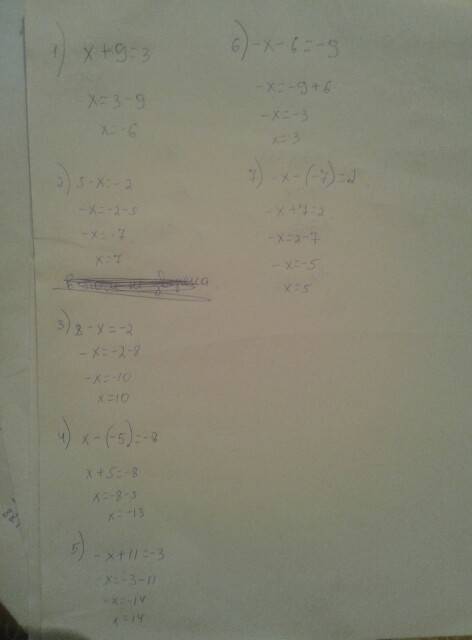 1) x+9=3
x=3-9
x=-6
2) 5-x=-2
-x=-2-5
-x=-7
x=7
3) 8-x=-2
-x=-2-8
-x=-10
x=10
4) x-(-5)=-8
x+5=-8
x=-8-5
x=-13
5) -x+11=-3
-x=-3-11
-x=-14
x=14
6) -x-6=-9
-x=-9+6
-x=-3
x=3
7) -x-(-7)=2
-x+7=2
-x=2-7
-x=-5
x=5